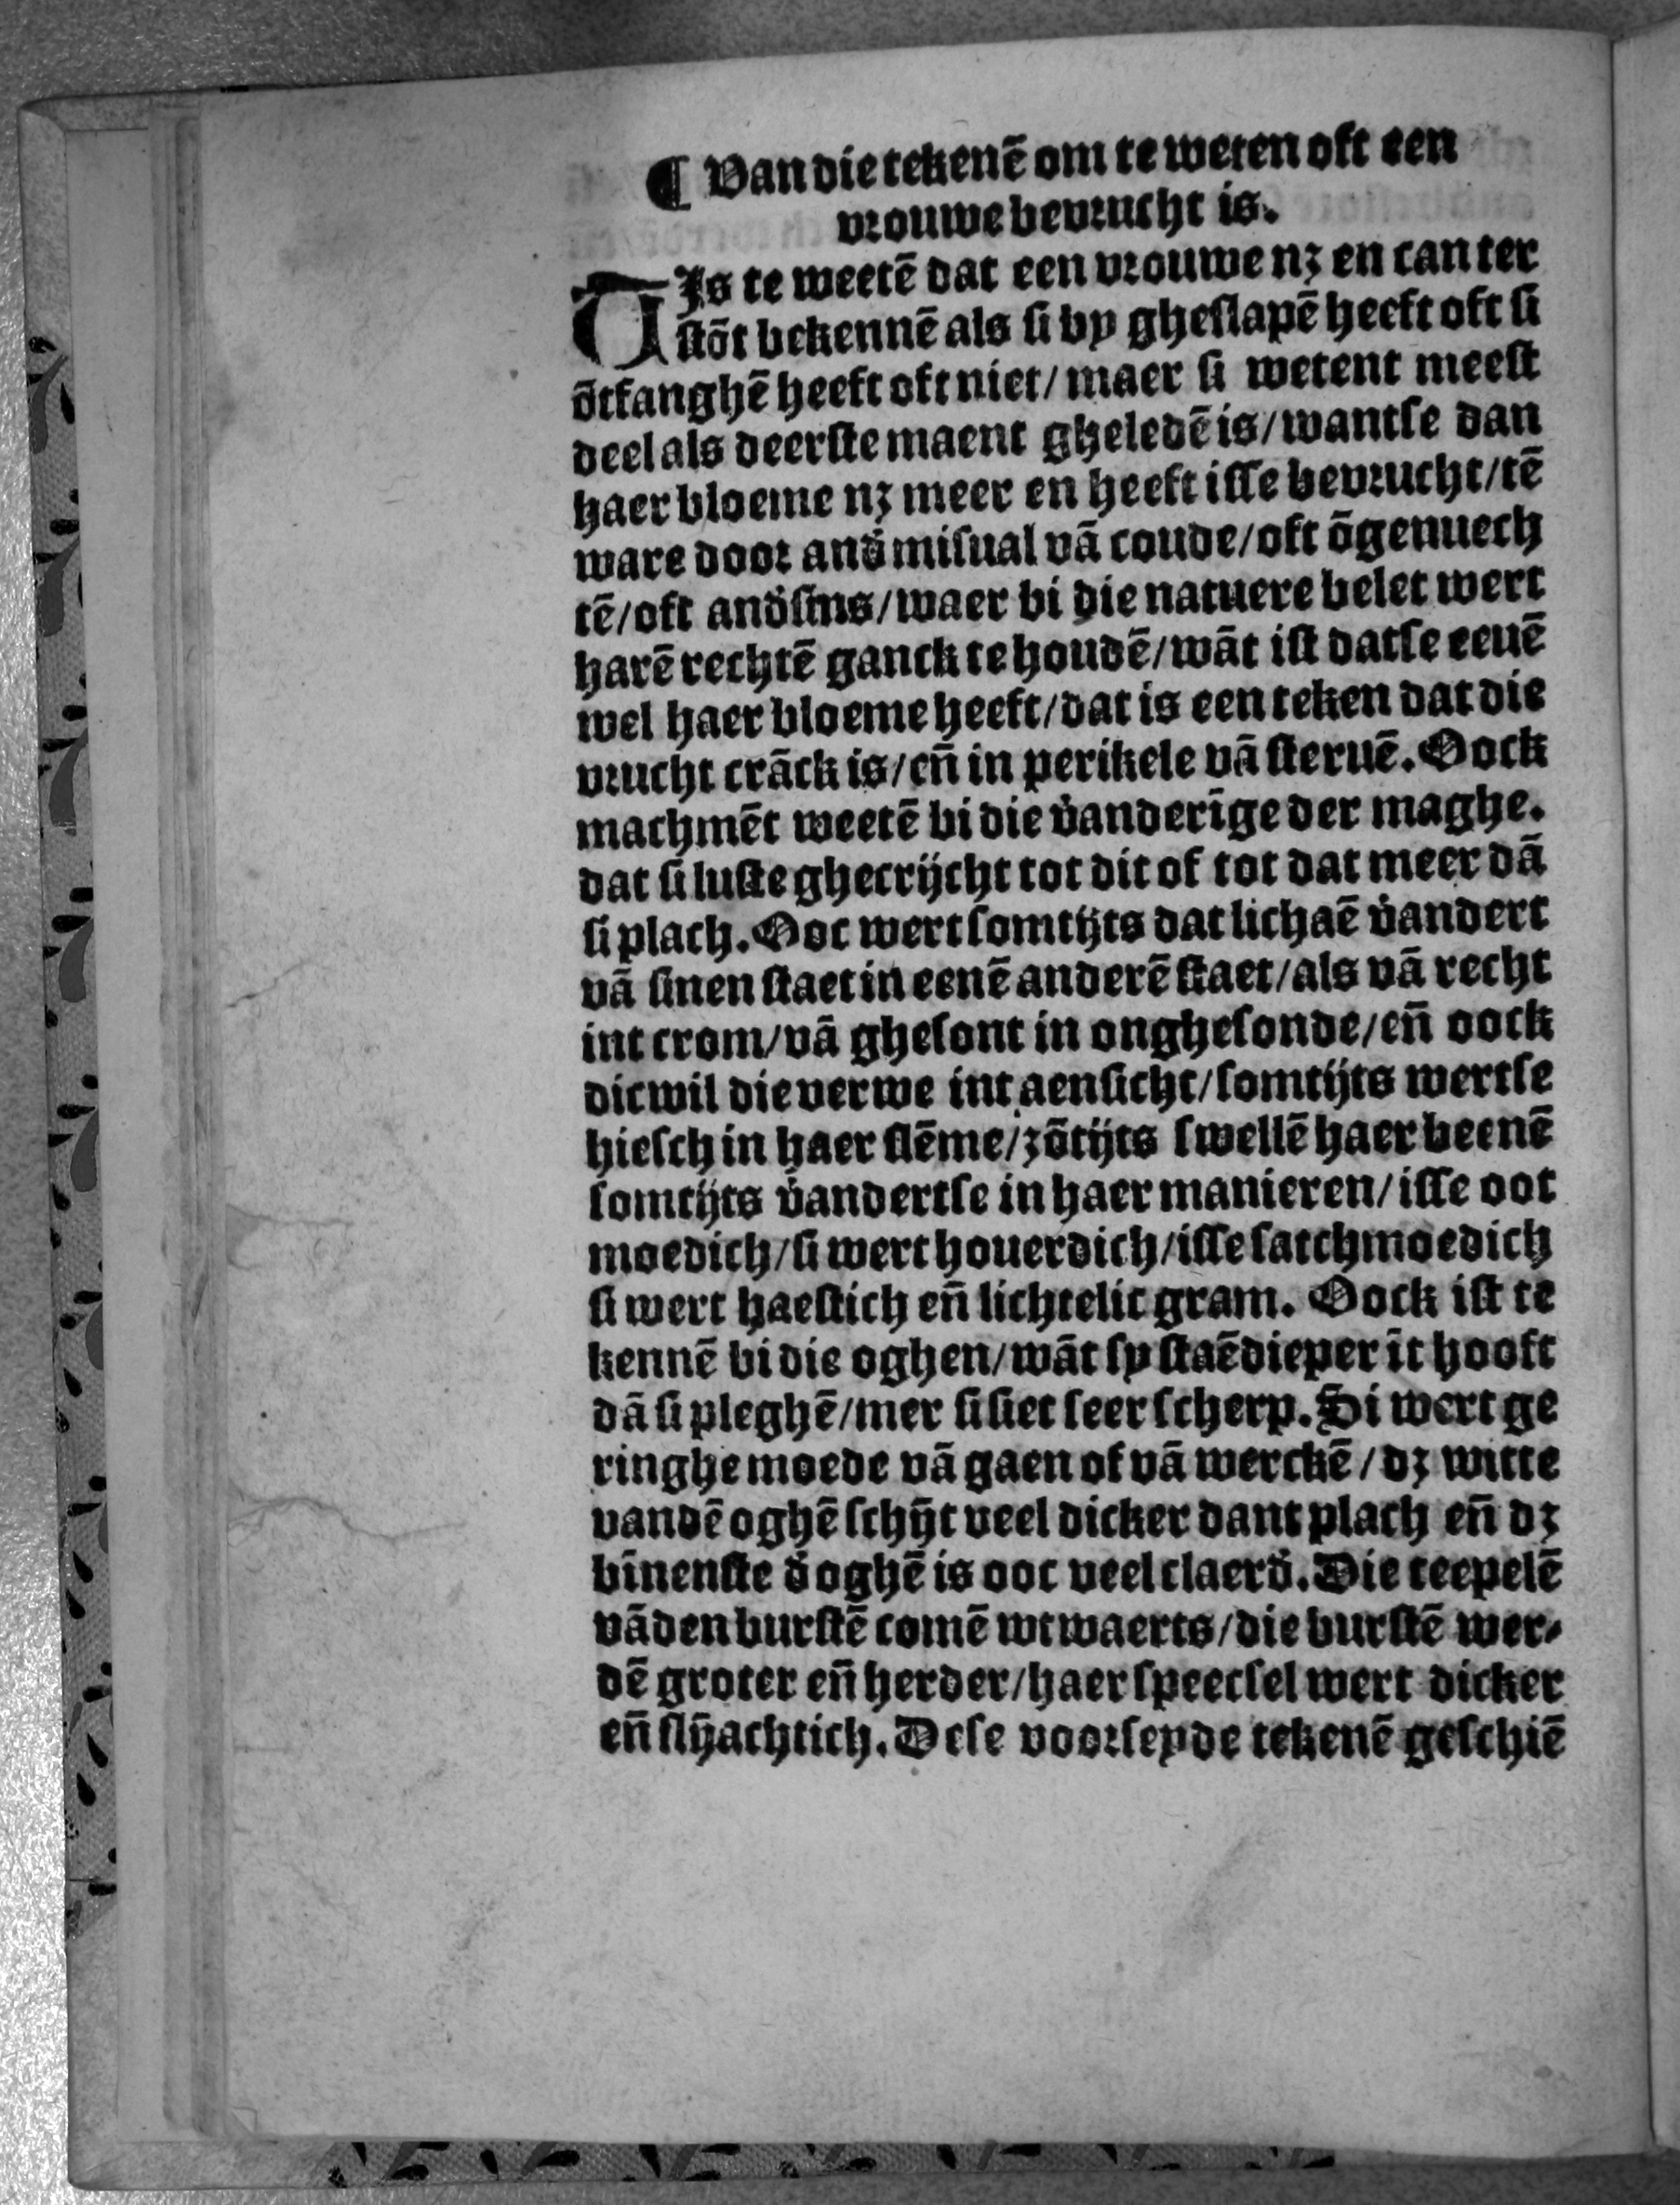 ¶ Van die tekenē om te weten oft een
vrouwe bevrucht is.
TIs te weetē dat een vrouwe nꝫ en can ter
stōt bekennē als si by gheslapē heeft oft si
ōtfanghē heeft oft niet/ maer si wetent meest
deel als deerste maent gheledē is/ wantse dan
haer bloeme nꝫ meer en heeft isse bevrucht/ tē
ware door and̕ misual vā coude/ oft ōgenuech
tē/ oft and̕sins/ waer bi die natuere belet wert
harē rechtē ganck te houdē/ wāt ist datse euē
wel haer bloeme heeft/ dat is een teken dat die
vrucht crāck is/ en̄ in perikele vā steruē. Oock
machmēt weetē bi die v̕anderīge der maghe.
dat si luste ghecrijcht tot dit of tot dat meer dā
si plach. Ooc wert somtijts dat lichaē v̕andert
vā sinen staet in eenē anderē staet/ als vā recht
int crom/ vā ghesont in onghesonde/ en̄ oock
dicwil die verwe int aensicht/ somtijts wertse
hiesch in haer stēme/ zōtijts swellē haer beenē
somtijts v̕andertse in haer manieren/ isse oot
moedich/ si wert houerdich/ isse sachmoedich
si wert haestich en̄ lichtelic gram. Oock ist te
kennē bi die oghen/ wāt sy staē dieper īt hooft
dā si pleghē/ mer si siet seer scherp. Si wert ge
ringhe moede vā gaen of vā werckē/ dꝫ witte
vandē oghē schijt veel dicker dant plach en̄ dꝫ
bīnenste d̕ oghē is ooc veel claerd̕. Die teepelē
vāden burstē comē wtwaerts/ die burstē wer⸗
dē groter en̄ herder/ haer speecsel wert dicker
en̄ slijachtich. Dese voorseyde tekenē geschiē